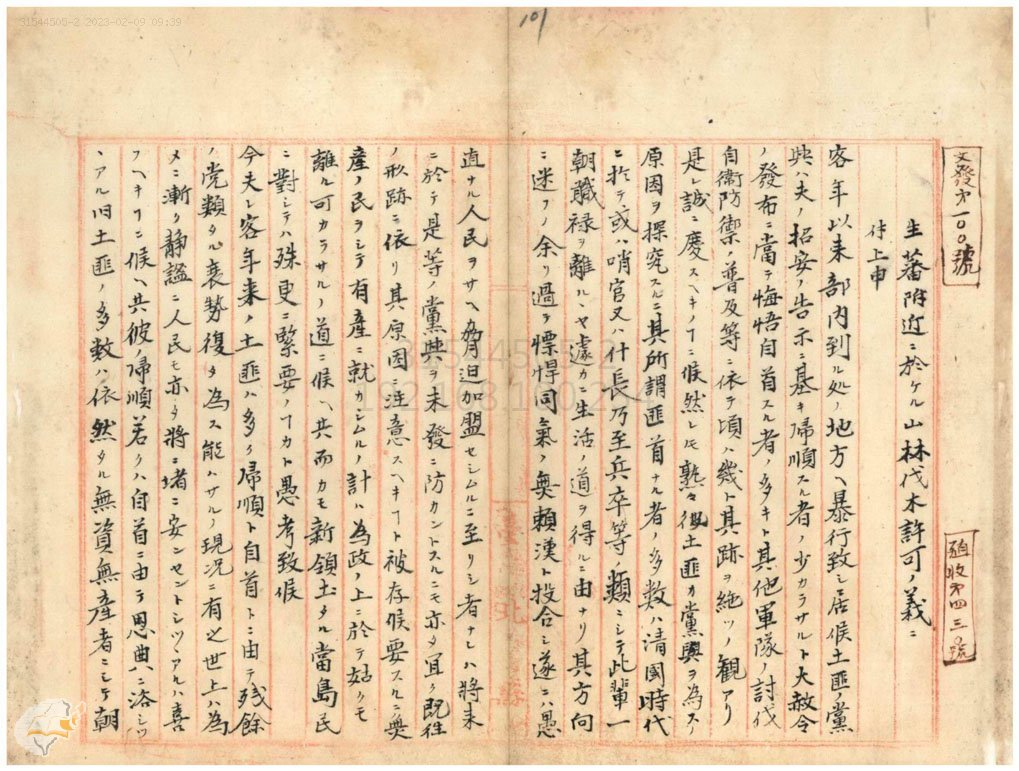 31544505-2 2023-02-09 09:39
101
文發第一〇〇號
殖收第四三〇號
生蕃附近ニ於ケル山林伐木許可ノ義ニ
付上申
客年以来部内到ル処ノ地方ヘ暴行致シ居候土匪ノ黨
與ハ夫ノ招安ノ告示ニ基キ帰順スル者ノ少カラサルト大赦令
ノ發布ニ當テ悔悟自首スル者ノ多キト其他軍隊ノ討伐
自衛防禦ノ普及等ニ依テ頃ハ幾ト其跡ヲ絶ツノ観アリ
是レ誠ニ慶スヘキノ丁ニ候然レモ熟々彼土匪カ黨與ヲ為スノ
原因ヲ探究スルニ其所謂匪首ナル者ノ多数ハ清國時代
ニ於テ或ハ哨官又ハ什長乃至兵卒等ノ類ニシテ此輩一
朝職禄ヲ離ルヽヤ遽カニ生活ノ道ヲ得ルニ由ナリ其方向
ニ迷フノ余リ過テ慓悍同氣ノ無頼漢ト投合シ遂ニハ愚
直ナル人民ヲサヘ脅迫加盟セシムルニ至リシ者ナレハ將未
ニ於テ是等ノ黨與ヲ未發ニ防カントスルニモ亦タ冝ク既往
ノ形跡ニ依リ其原因ニ注意スヘキ丁ト被存候要スルニ無
産ノ民ヲシテ有産ニ就カシムルノ計ハ為政ノ上ニ於テ姑クモ
離ル可カラサルノ道ニ候ヘ共而カモ新領土タル當島民
ニ對シテハ殊更ニ緊要ノ丁カト愚考致候
今夫レ客年来ノ土匪ハ多ク帰順ト自首トニ由テ残餘
ノ党類タル衰勢復タ為ス能ハサルノ現況ニ有之世上ハ為
メニ漸ク静謐ニ人民モ亦タ將ニ堵ニ安ンセントシツヽアルハ喜
フヘキ丁ニ候ヘ共彼ノ帰順若クハ自首ニ由テ恩典ニ浴シツ
ヽアル旧土匪ノ多数ハ依然タル無資無産者ニシテ朝
31544505-2